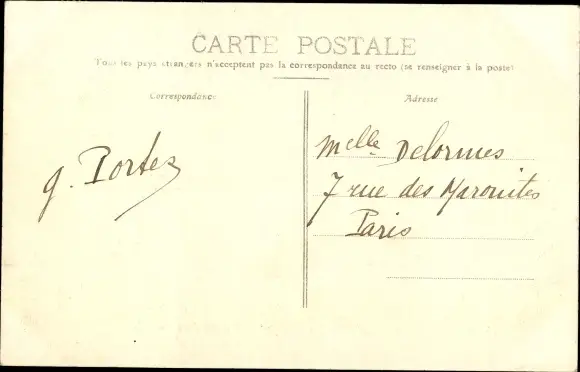 CARTE POSTALE
Tous les pays étrangers n'acceptent pas la correspondance au recto (se renseigner à la poste)
Correspondance
Adresse
g. Portez
Melle Delormes
7 rue des Maronites
Paris